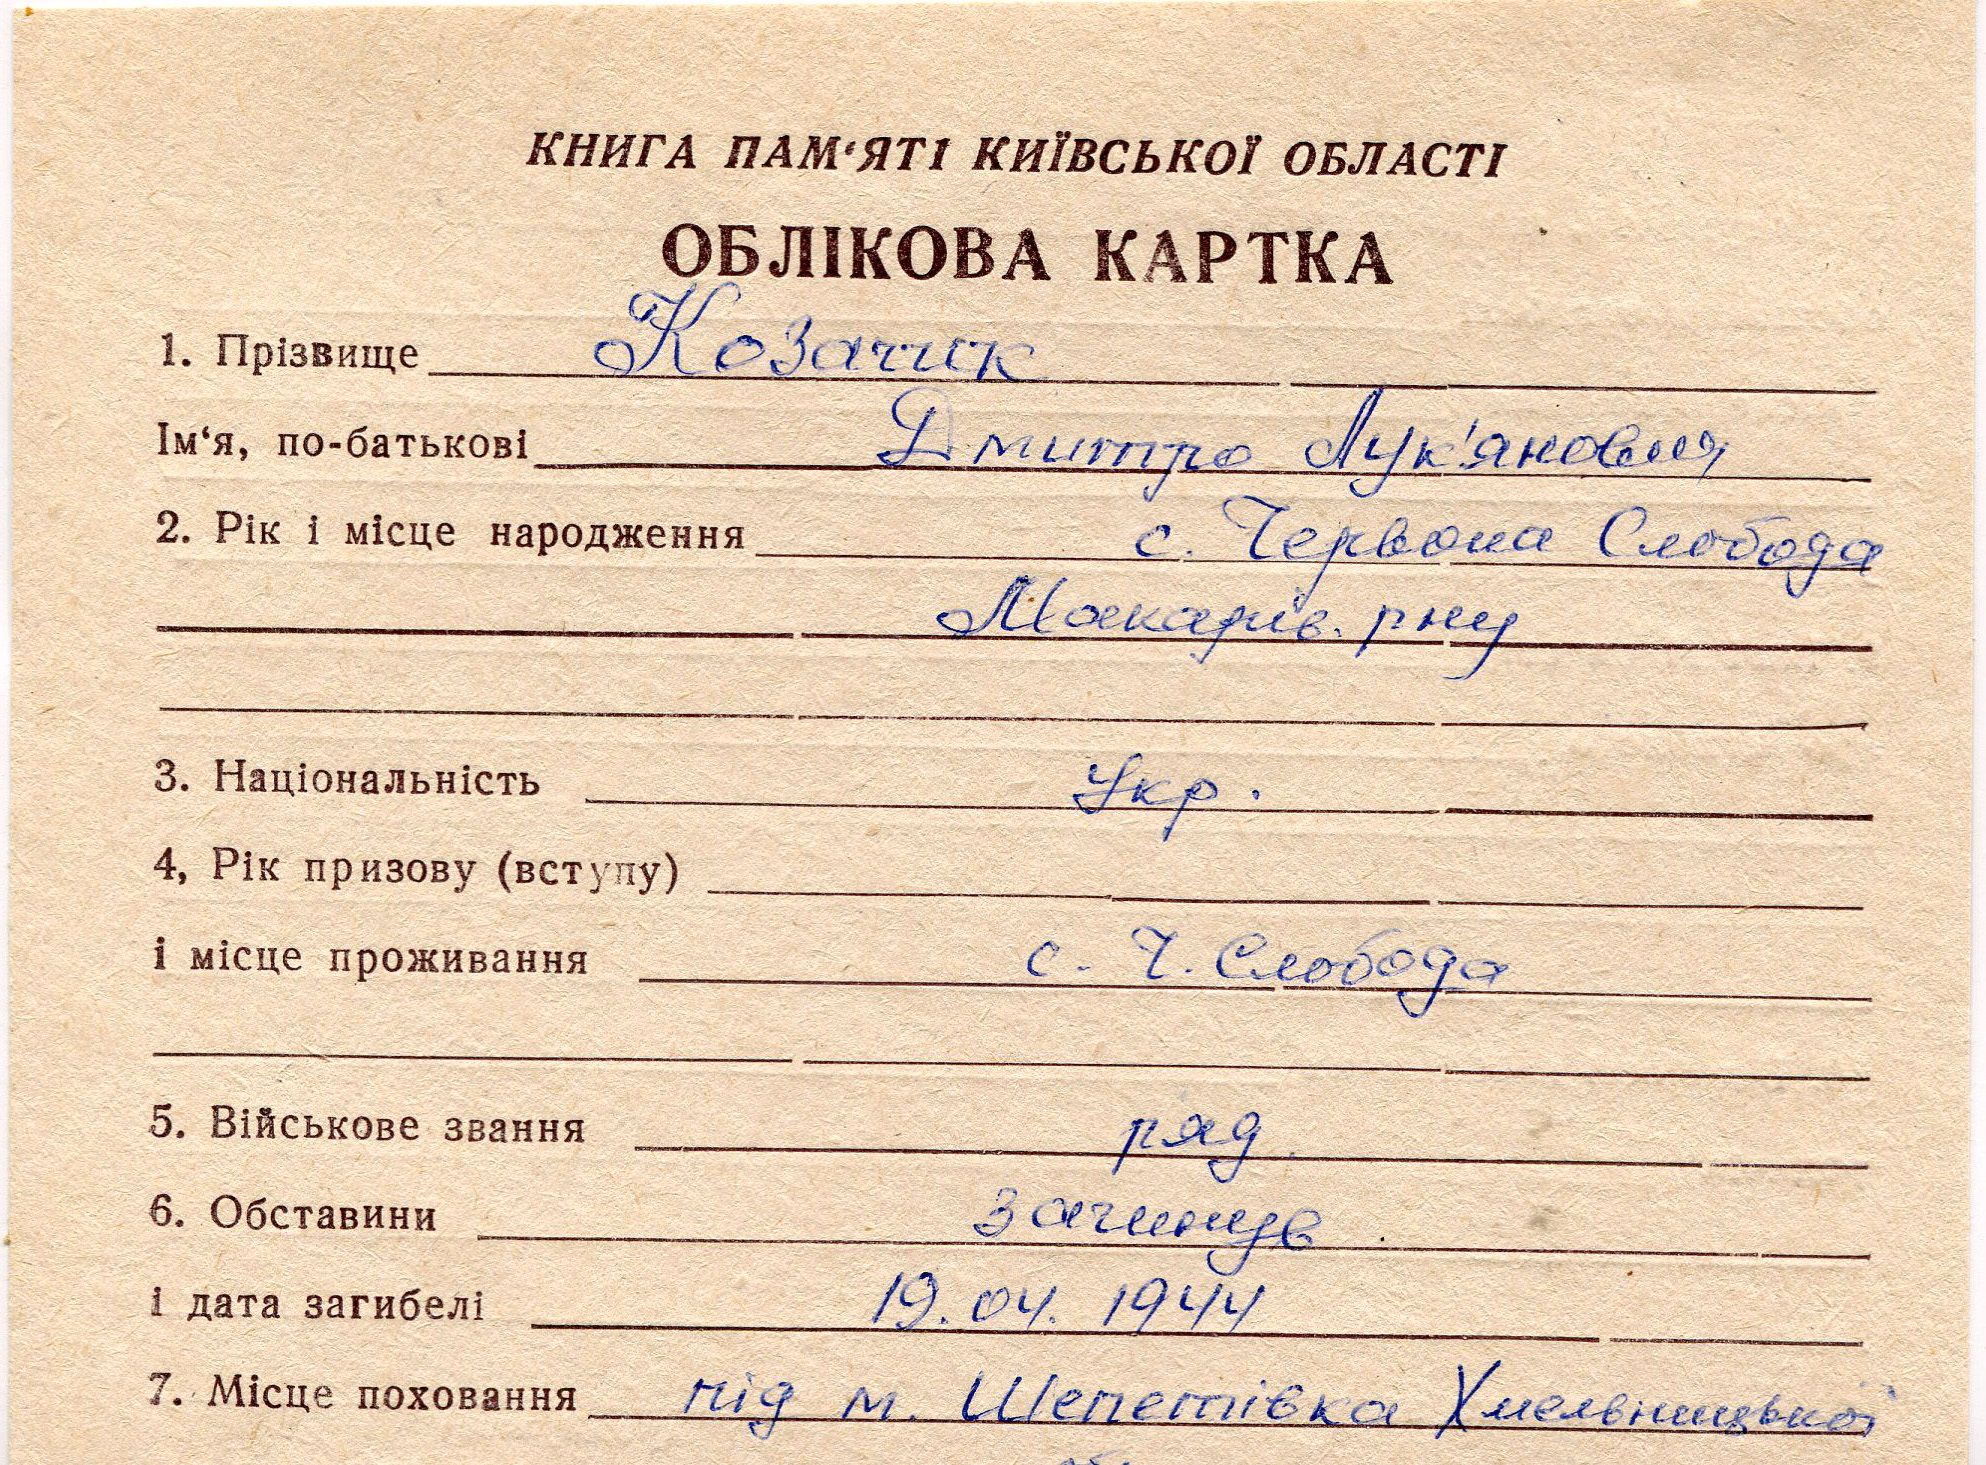 КНИГА ПАМ‘ЯТІ КИЇВСЬКОЇ ОБЛАСТІ
ОБЛІКОВА КАРТКА
1. Прізвище Козачик
Ім‘я, по-батькові Дмитро Лук'янович
2. Рік і місце народження с. Червона Слобода
Макарів. рну
3. Національність Укр.
4, Рік призову (вступу)
і місце проживання с. Ч. Слобода
5. Військове звання ряд.
6. Обставини загинув.
і дата загибелі 19.04.1944
7. Місце поховання під м. Шепетівка Хмельницької